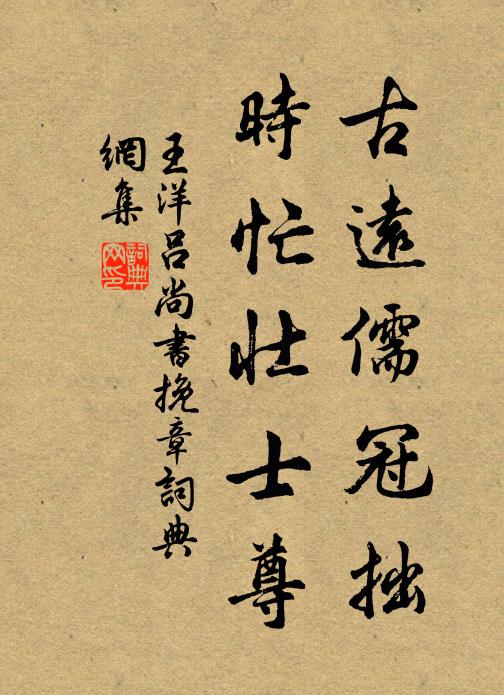 古遠儒冠拙
時忙壯士尊
王洋呂尚書挽章詞典
網集
詞典
网印